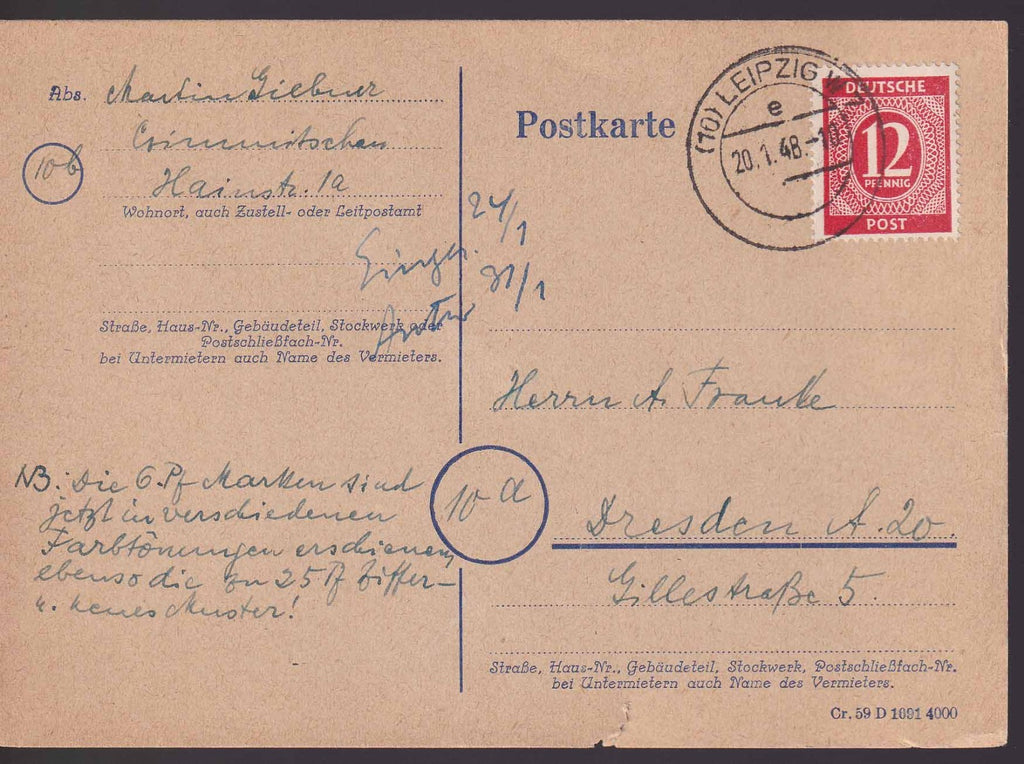 Abs. Martin Giebner
Crimmitschau
10b
Hainstr. 1a
Wohnort, auch Zustell- oder Leitpostamt
Straße, Haus-Nr., Gebäudeteil, Stockwerk oder
Postschließfach-Nr.
bei Untermietern auch Name des Vermieters.
24/1
31/1
NB: Die 6 Pf Marken sind
jetzt in verschiedenen
Farbtönungen erschienen,
ebenso die zu 25 Pf Ziffer-
u. neues Muster!
Postkarte
(10) LEIPZIG
e
20.1.48.-
DEUTSCHE
12
PFENNIG
POST
Herrn A. Franke
10 a
Dresden A. 20.
Gillestraße 5.
Straße, Haus-Nr., Gebäudeteil, Stockwerk, Postschließfach-Nr.
bei Untermietern auch Name des Vermieters.
Cr. 59 D 1091 4000